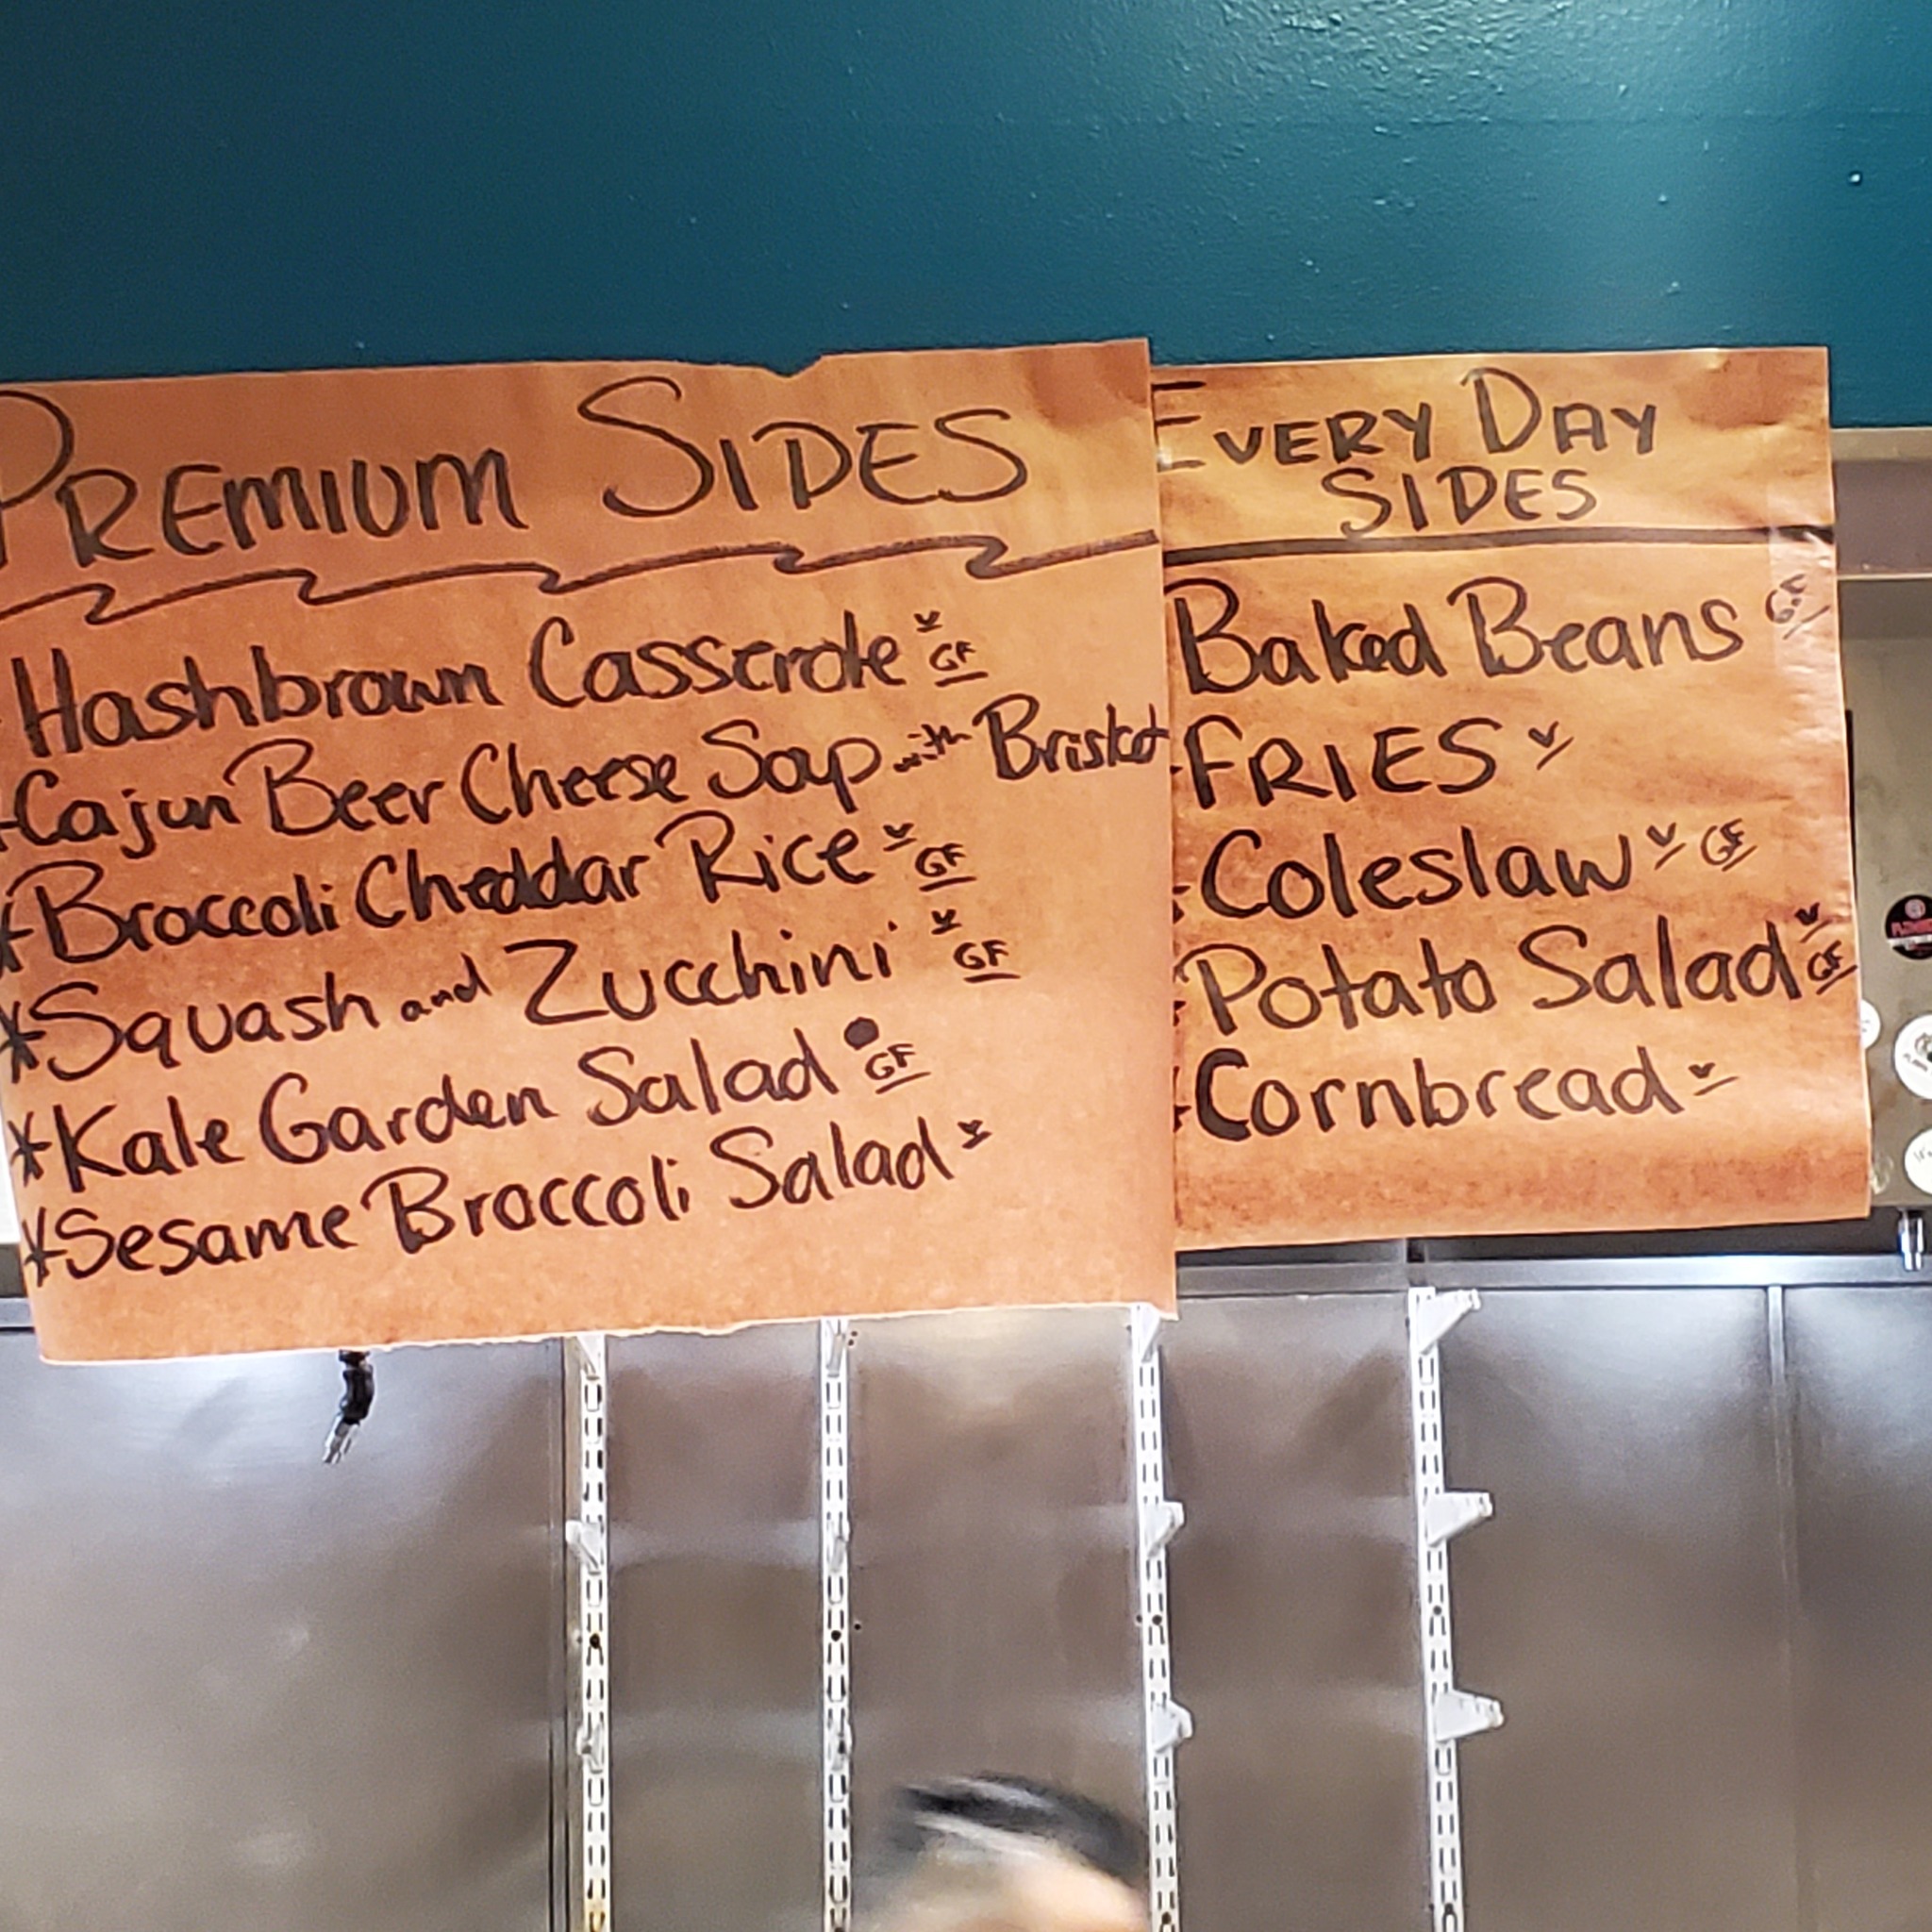 PREMIUM SIDES
Hashbrown Casserole V GF
*Cajun Beer Cheese Soup with Brisket
*Broccoli Cheddar Rice V GF
*Squash and Zucchini V GF
*Kale Garden Salad GF
*Sesame Broccoli Salad V
EVERY DAY
SIDES
Baked Beans G.F
FRIES V
Coleslaw V GF
Potato Salad V GF
Cornbread V